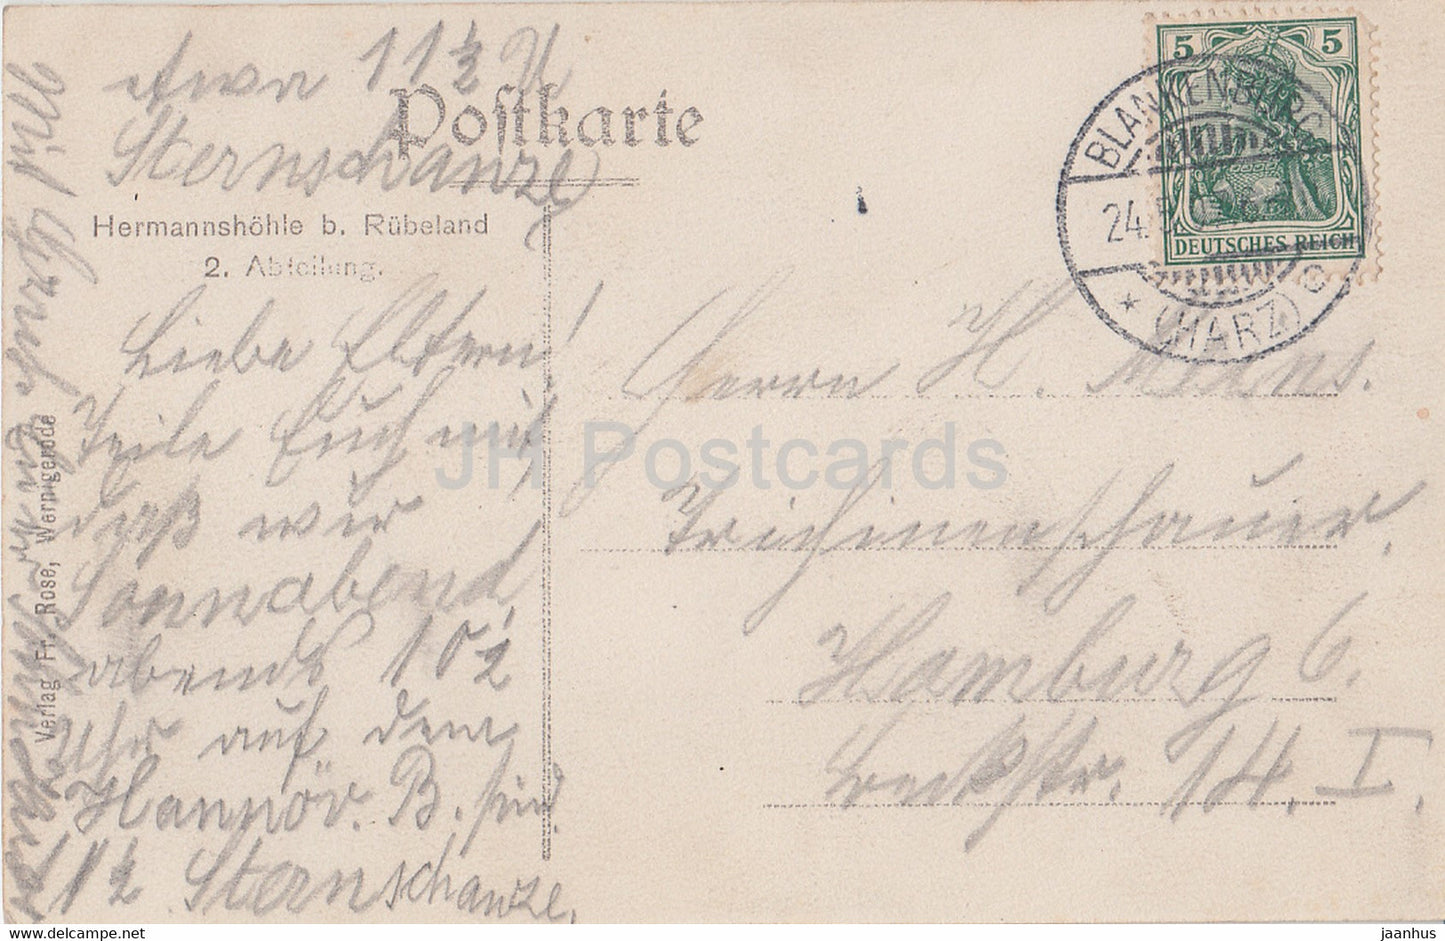 etwa 11 ½ U
Sternschanze
Postkarte
Hermannshöhle b. Rübeland
2. Abteilung.
Liebe Eltern!
Teile Euch mit,
daß wir
Sonnabend
abends 10 ½
Uhr auf dem
Hannöv. B. sind.
11 ½ Sternschanze.
Verlag Fr. Rose, Wernigerode
5 5
DEUTSCHES REICH
BLANKENBURG
24.5.
* (HARZ) c
Herrn H.
Trichinenschauer,
Hamburg 6.
Beckstr. 14. I.
JH Postcards
jaanhus
www.delcampe.net